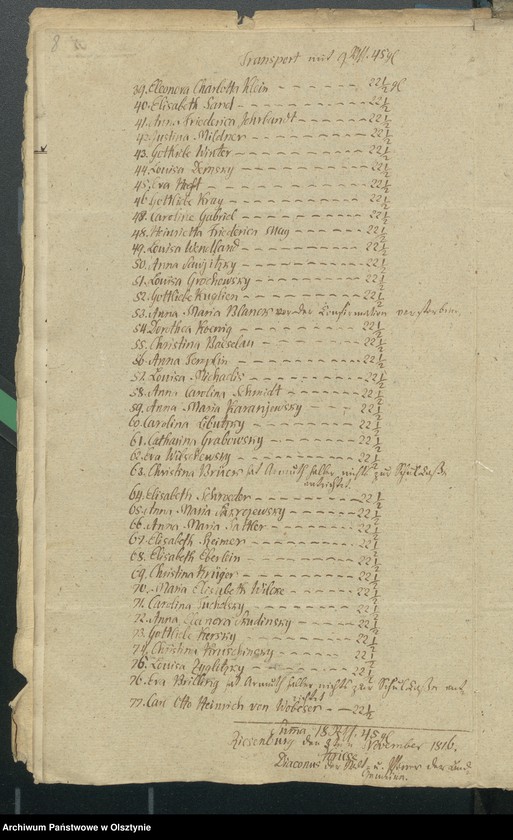 8
Transport mit 9 Rtl. 45 gl
39. Eleonora Charlotta Klein - - - - 22 1/2 gl
40. Elisabeth Sand - - - - 22 1/2
41. Anna Friederica Fehrlandt - - - - 22 1/2
42. Justina Mildner - - - - 22 1/2
43. Gottliebe Winter - - - - 22 1/2
44. Louisa Demsky - - - - 22 1/2
45. Eva Heft - - - - 22 1/2
46. Gottliebe Kray - - - - 22 1/2
48. Caroline Gabriel - - - - 22 1/2
48. Heinrietta Friederica May - - - - 22 1/2
49. Louisa Wendland - - - - 22 1/2
50. Anna - - - - 22 1/2
51. Louisa Grochowsky - - - - 22 1/2
52. Gottliebe Kuglien - - - - 22 1/2
53. Anna Maria Blanck vor der Confirmation verstorben.
54. Dorothea Koenig - - - - 22 1/2
55. Christina Balselau - - - - 22 1/2
56. Anna Templin - - - - 22 1/2
57. Louisa Michaelis - - - - 22 1/2
58. Anna Carolina Schmidt - - - - 22 1/2
59. Anna Maria Karanjewsky - - - - 22 1/2
60. Carolina - - - - 22 1/2
61. Catharina Grabowsky - - - - 22 1/2
62. Eva Wilschewsky - - - - 22 1/2
63. Christina Bruer hat Armuth halber nichts zur Schulcasse
entrichtet.
64. Elisabeth Schroeder - - - - 22 1/2
65. Anna Maria - - - - 22 1/2
66. Anna Maria Sattler - - - - 22 1/2
67. Elisabeth Heimer - - - - 22 1/2
68. Elisabeth Eberlein - - - - 22 1/2
69. Christina Krüger - - - - 22 1/2
70. Maria Elisabeth Wilcke - - - - 22 1/2
71. Carolina Sucholsky - - - - 22 1/2
72. Anna Eleonora Skudinsky - - - - 22 1/2
73. Gottliebe Kersky - - - - 22 1/2
74. Christina Kruschinsky - - - - 22 1/2
75. Louisa Zyglitzky - - - - 22 1/2
76. Eva Brillwig hat Armuth halber nichts zur Schulcasse ent
richtet
77. Carl Otto Heinrich von Wobeser - - 22 1/2
Suma 18 Rtl. 45 gl
Riesenburg den November 1816.
Diaconus der Stadt u. Pfarrer der Land
Gemeine.
Archiwum Państwowe w Olsztynie